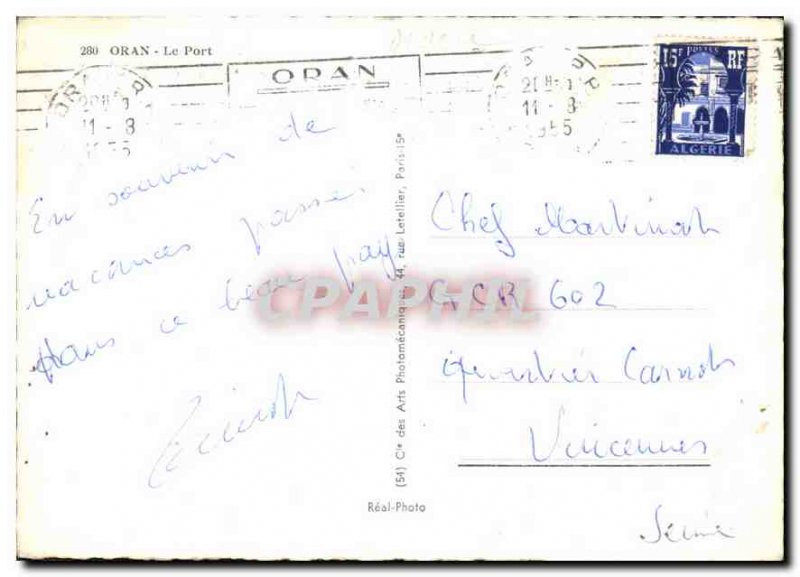 280 ORAN - Le Port
ORAN
15F POSTES RF
ALGERIE
11 - 8
1955
11 - 8
1955
En souvenir de
vacances passées
dans ce beau pays
Chef Martinot
GCR 602
Quartier Carnot
Vincennes
Seine
(54) Cie des Arts Photomécaniques 44, rue Letellier, Paris-15e
Réal-Photo
CPAPHIL